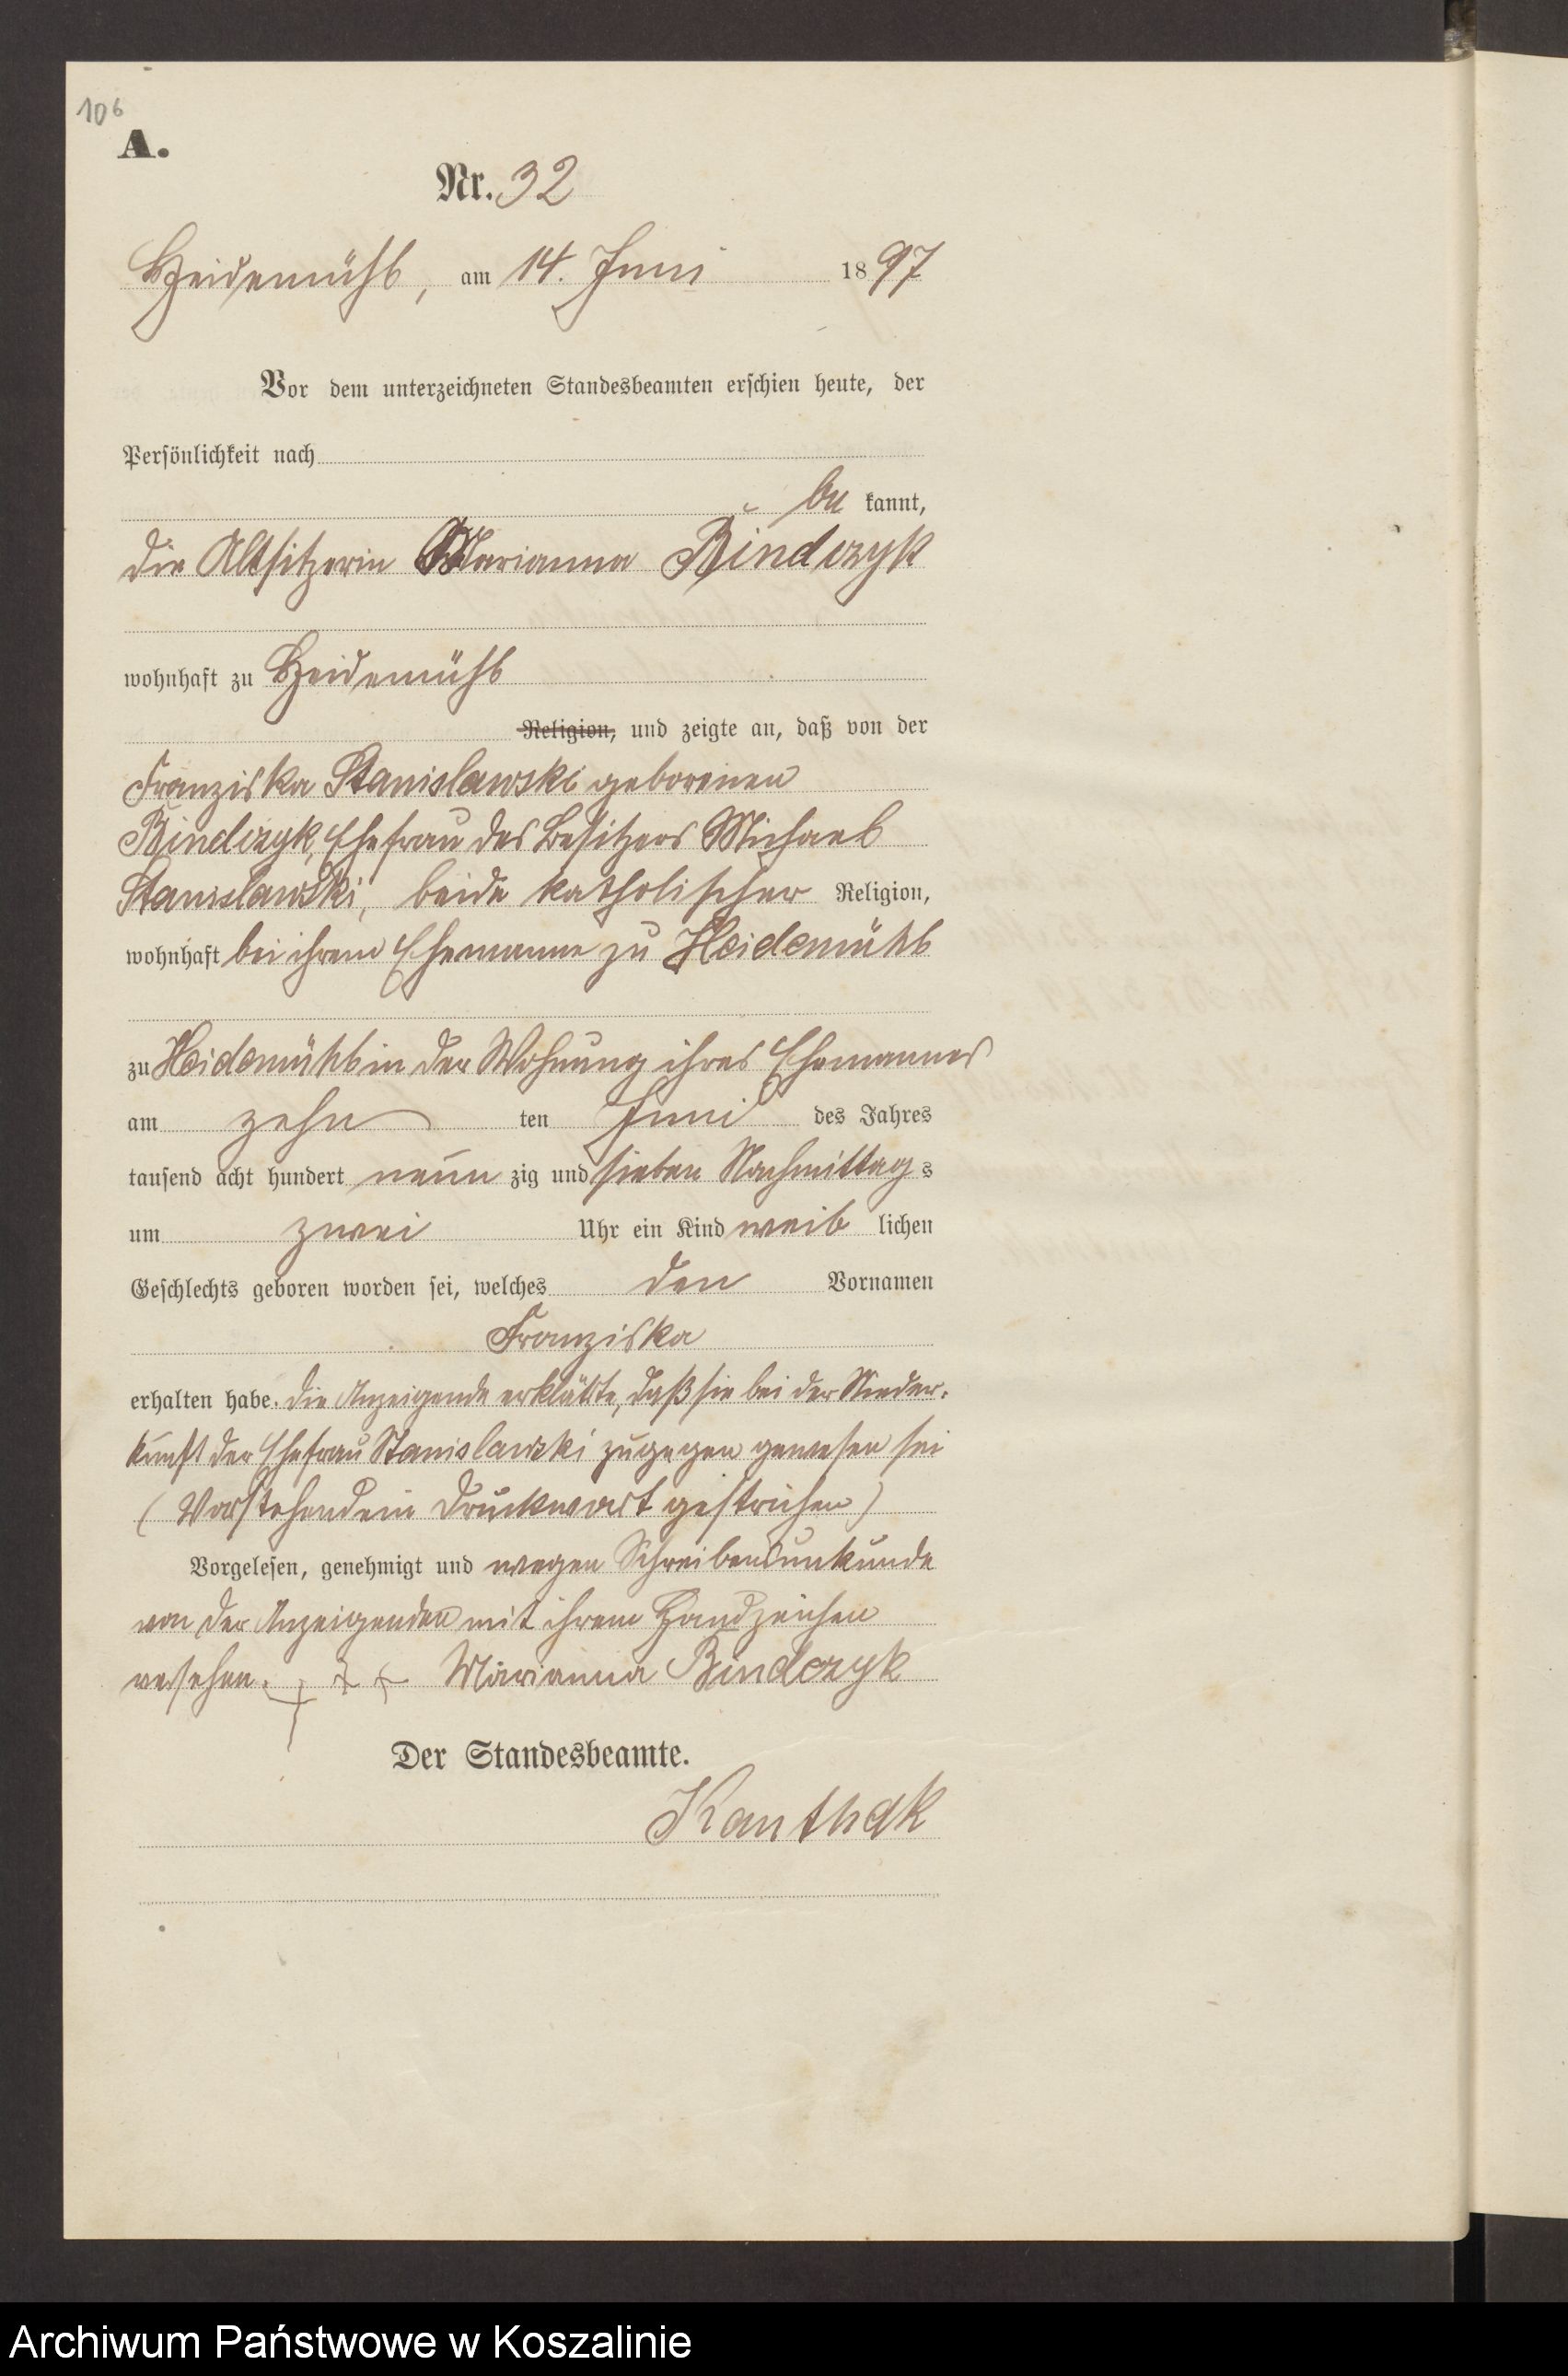 106
A.
Nr. 32
Heidemühl, am 14. Juni 1897
Vor dem unterzeichneten Standesbeamten erschien heute, der
Persönlichkeit nach
be kannt,
die Altsitzerin Marianna Bindczyk
wohnhaft zu Heidemühl
Religion, und zeigte an, daß von der
Franziska Stanislawski geborenen
Bindczyk, Ehefrau des Besitzers Michael
Stanislawski, beide katholischer Religion,
wohnhaft bei ihrem Ehemanne zu Heidemühl
zu Heidemühl in der Wohnung ihres Ehemannes
am zehn ten Juni des Jahres
tausend acht hundert neun zig und sieben Nachmittag s
um zwei Uhr ein Kind weib lichen
Geschlechts geboren worden sei, welches den Vornamen
Franziska
erhalten habe. Die Anzeigende erklärte, daß sie bei der Nieder-
kunft der Ehefrau Stanislawski zugegen gewesen sei
(Vorstehend ein Druckwort gestrichen)
Vorgelesen, genehmigt und wegen Schreibensunkunde
von der Anzeigenden mit ihrem Handzeichen
versehen. + + + Marianna Bindczyk
Der Standesbeamte.
Kanthak
Archiwum Państwowe w Koszalinie